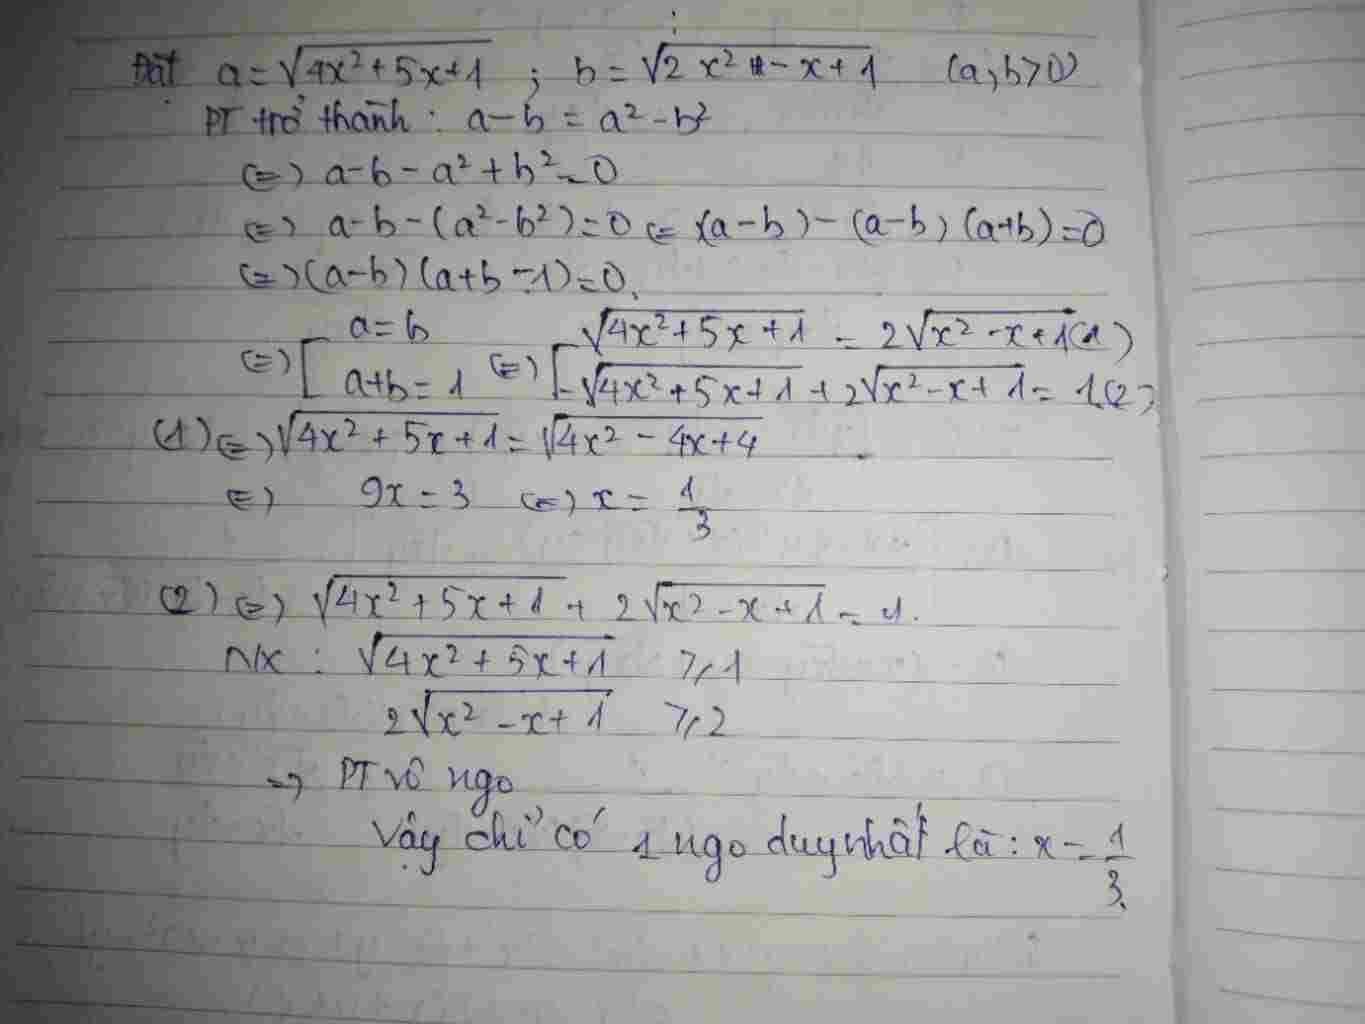 Đặt a = √(4x² + 5x + 1) ; b = √(2 x² - x + 1) (a, b > 0)
PT trở thành : a - b = a² - b²
(=) a - b - a² + b² = 0
(=) a - b - (a² - b²) = 0 (=) (a - b) - (a - b) (a + b) = 0
(=) (a - b) (a + b - 1) = 0.
(=) [ a = b (=) [ √(4x² + 5x + 1) = 2√(x² - x + 1) (1)
a + b = 1 √(4x² + 5x + 1) + 2√(x² - x + 1) = 1 (2)
(1) (=) √(4x² + 5x + 1) = √(4x² - 4x + 4)
(=) 9x = 3 (=) x = 1/3
(2) (=) √(4x² + 5x + 1) + 2√(x² - x + 1) = 1.
N/x : √(4x² + 5x + 1) ≥ 1
2√(x² - x + 1) ≥ 2
=> PT vô ngo
Vậy chỉ có 1 ngo duy nhất là : x = 1/3.